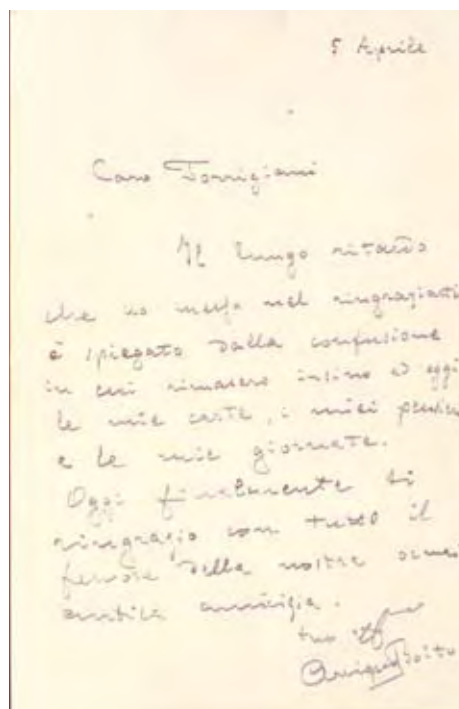 5 Aprile
Caro Torrigiani
Il lungo ritardo
che ho messo nel ringraziarti
è spiegato dalla confusione
in cui rimasero insino ad oggi
le mie carte, i miei pensieri
e le mie giornate.
Oggi finalmente ti
ringrazio con tutto il
fervore della nostra ormai
antica amicizia.
tuo aff
Arrigo Boito